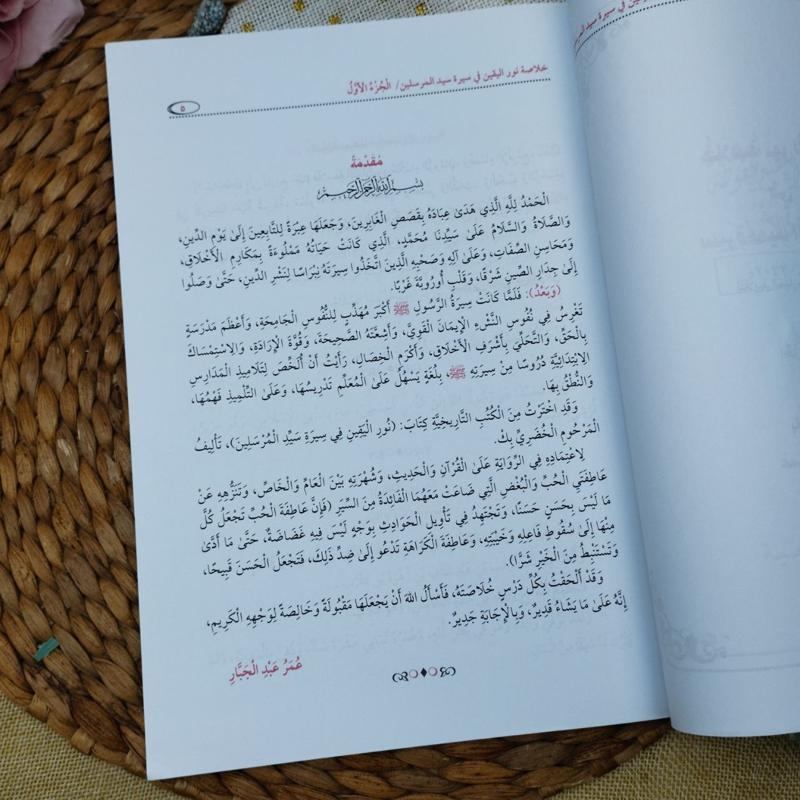 خلاصة نور اليقين في سيرة سيد المرسلين/ الْجُزْءُ الأَوَّلُ
٥
مُقَدِّمَةٌ
بِسْمِ اللهِ الرَّحْمَنِ الرَّحِيمِ
الْحَمْدُ لِلَّهِ الَّذِي هَدَىٰ عِبَادَهُ بِقَصَصِ الْغَابِرِينَ، وَجَعَلَهَا عِبْرَةً لِلتَّابِعِينَ إِلَىٰ يَوْمِ الدِّينِ،
وَالصَّلَاةُ وَالسَّلَامُ عَلَىٰ سَيِّدِنَا مُحَمَّدٍ، الَّذِي كَانَتْ حَيَاتُهُ مَمْلُوءَةً بِمَكَارِمِ الأَخْلَاقِ،
وَمَحَاسِنِ الصِّفَاتِ، وَعَلَىٰ آلِهِ وَصَحْبِهِ الَّذِينَ اتَّخَذُوا سِيرَتَهُ نِبْرَاسًا لِنَشْرِ الدِّينِ، حَتَّىٰ وَصَلُوا
إِلَىٰ جِدَارِ الصِّينِ شَرْقًا، وَقَلْبِ أُورُوبَّةَ غَرْبًا.
(وَبَعْدُ): فَلَمَّا كَانَتْ سِيرَةُ الرَّسُولِ ﷺ أَكْبَرَ مُهَذِّبٍ لِلنُّفُوسِ الْجَامِحَةِ، وَأَعْظَمَ مَدْرَسَةٍ
تَغْرِسُ فِي نُفُوسِ النَّشْءِ الإِيمَانَ الْقَوِيَّ، وَأَشِعَّتَهُ الصَّحِيحَةَ، وَقُوَّةَ الإِرَادَةِ، وَالاِسْتِمْسَاكَ
بِالْحَقِّ، وَالتَّحَلِّيَ بِأَشْرَفِ الأَخْلَاقِ، وَأَكْرَمِ الْخِصَالِ، رَأَيْتُ أَنْ أُلَخِّصَ لِتَلَامِيذِ الْمَدَارِسِ
الاِبْتِدَائِيَّةِ دُرُوسًا مِنْ سِيرَتِهِ ﷺ، بِلُغَةٍ يَسْهُلُ عَلَىٰ الْمُعَلِّمِ تَدْرِيسُهَا، وَعَلَىٰ التِّلْمِيذِ فَهْمُهَا،
وَالنُّطْقُ بِهَا.
وَقَدِ اخْتَرْتُ مِنَ الْكُتُبِ التَّارِيخِيَّةِ كِتَابَ: (نُورِ الْيَقِينِ فِي سِيرَةِ سَيِّدِ الْمُرْسَلِينَ)، تَأْلِيفُ
الْمَرْحُومِ الْخُضَرِيِّ بِكْ.
لِاعْتِمَادِهِ فِي الرِّوَايَةِ عَلَىٰ الْقُرْآنِ وَالْحَدِيثِ، وَشُهْرَتِهِ بَيْنَ الْعَامِّ وَالْخَاصِّ، وَتَنَزُّهِهِ عَنْ
عَاطِفَتَيِ الْحُبِّ وَالْبُغْضِ الَّتِي ضَاعَتْ مَعَهُمَا الْفَائِدَةُ مِنَ السِّيَرِ (فَإِنَّ عَاطِفَةَ الْحُبِّ تَجْعَلُ كُلَّ
مَا لَيْسَ بِحَسَنٍ حَسَنًا، وَتَجْتَهِدُ فِي تَأْوِيلِ الْحَوَادِثِ بِوَجْهٍ لَيْسَ فِيهِ غَضَاضَةٌ، حَتَّىٰ مَا أَدَّىٰ
مِنْهَا إِلَىٰ سُقُوطِ فَاعِلِهِ وَخَيْبَتِهِ، وَعَاطِفَةَ الْكَرَاهَةِ تَدْعُو إِلَىٰ ضِدِّ ذَلِكَ، فَتَجْعَلُ الْحَسَنَ قَبِيحًا،
وَتَسْتَنْبِطُ مِنَ الْخَيْرِ شَرًّا).
وَقَدْ أَلْحَقْتُ بِكُلِّ دَرْسٍ خُلَاصَتَهُ، فَأَسْأَلُ اللهَ أَنْ يَجْعَلَهَا مَقْبُولَةً وَخَالِصَةً لِوَجْهِهِ الْكَرِيمِ،
إِنَّهُ عَلَىٰ مَا يَشَاءُ قَدِيرٌ، وَبِالْإِجَابَةِ جَدِيرٌ.
عُمَرُ عَبْدُ الْجَبَّارِ